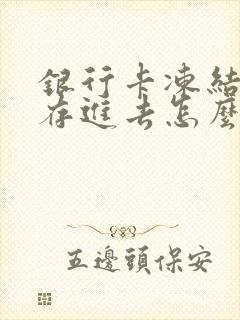 銀行卡凍結
存進去怎麼
五邊頭保安